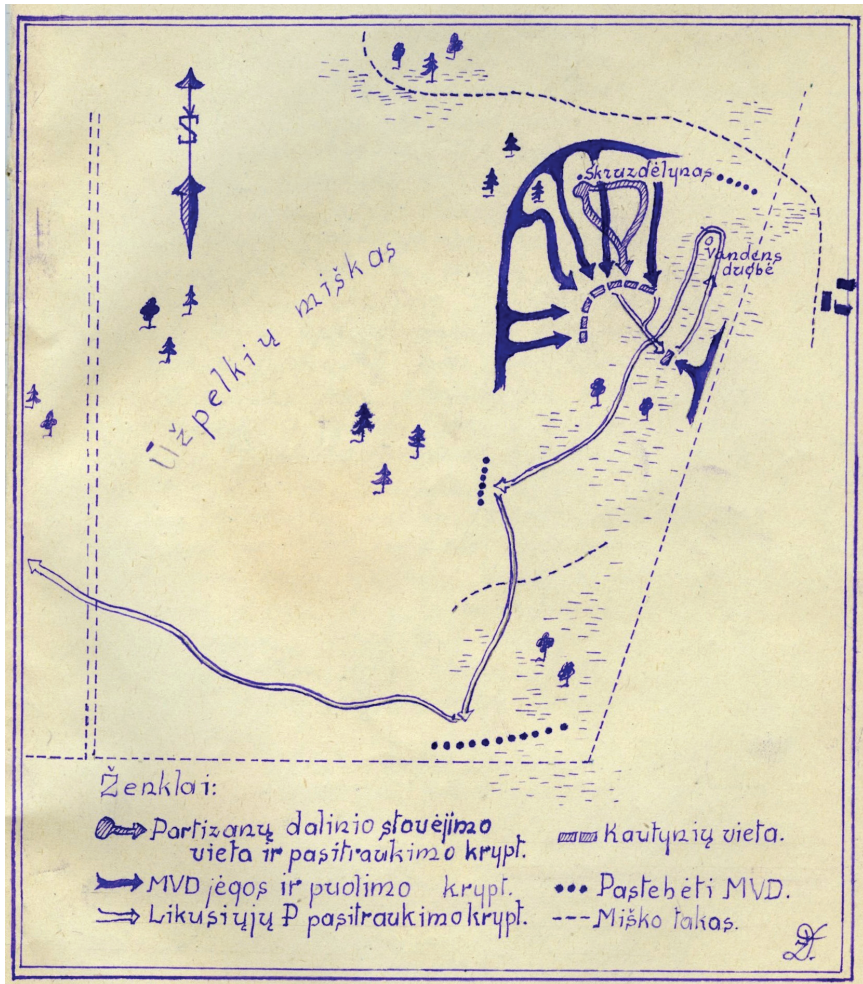 S
Skruzdėlynas
Vandens
duobė
Užpelkių miškas
Ženklai:
Partizanų dalinio stovėjimo
vieta ir pasitraukimo krypt.
MVD jėgos ir puolimo krypt.
Likusiųjų P pasitraukimo krypt.
Kautynių vieta.
Pastebėti MVD.
Miško takas.